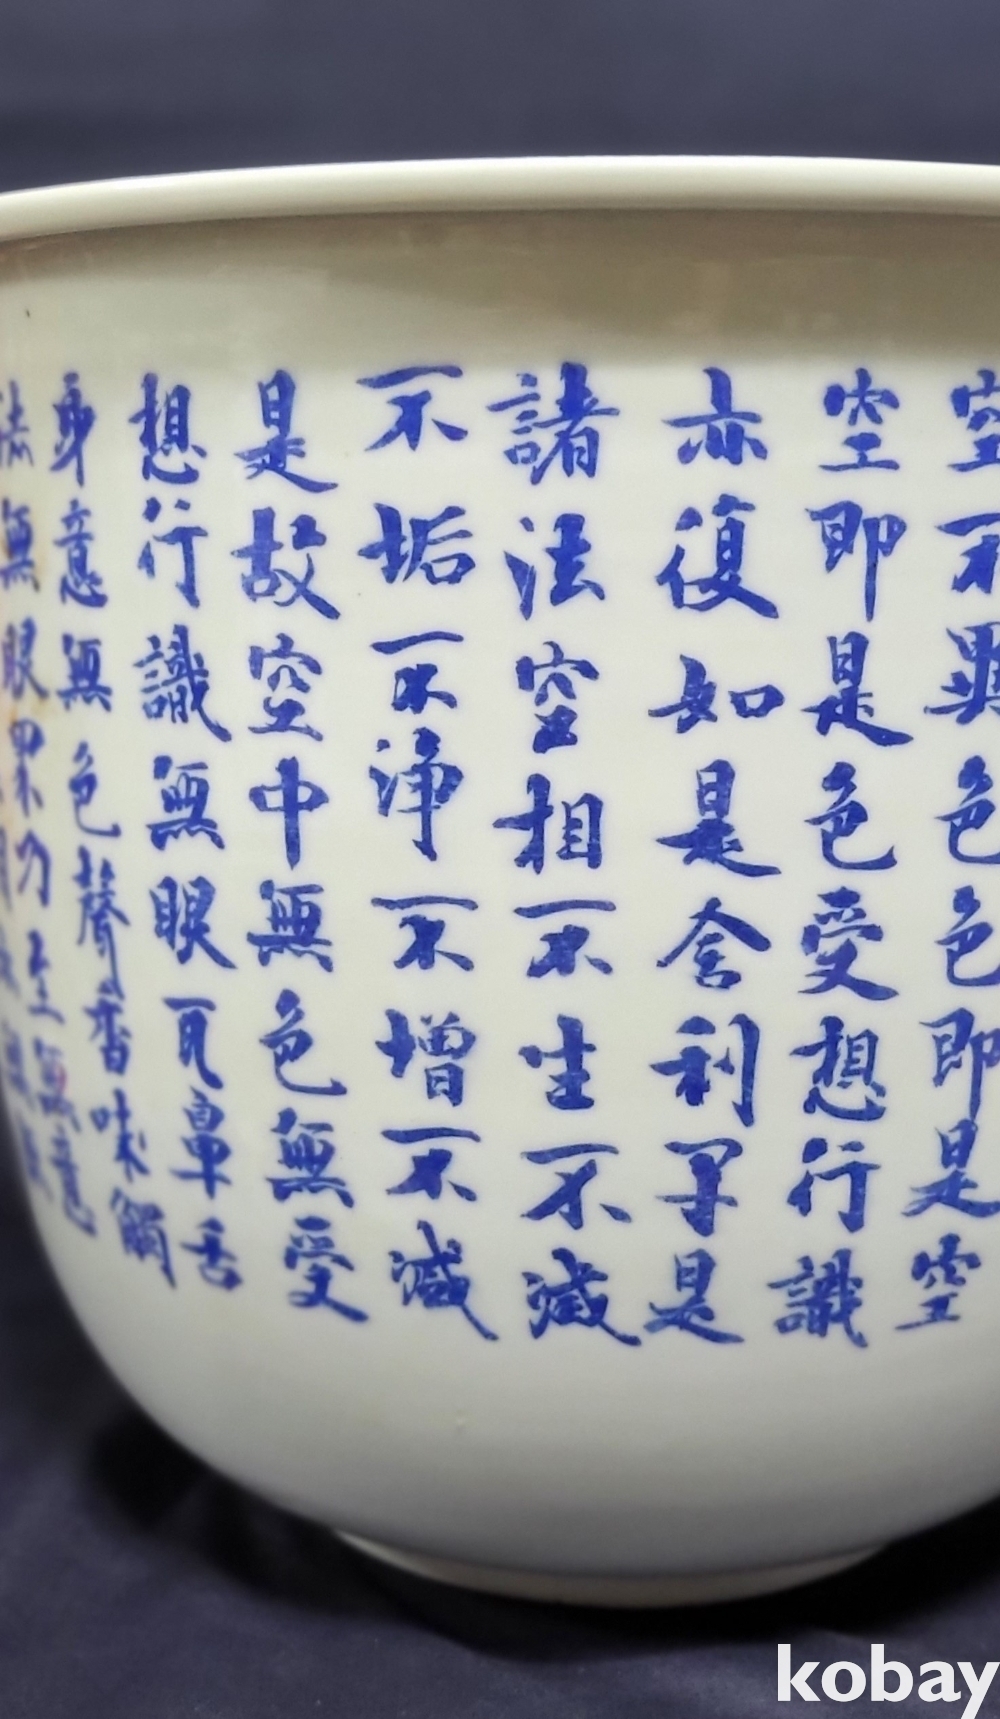 空不異色色即是空
空即是色受想行識
亦復如是舍利子是
諸法空相不生不滅
不垢不淨不增不減
是故空中無色無受
想行識無眼耳鼻舌
身意無色聲香味觸
法無眼界乃至無意
kobay